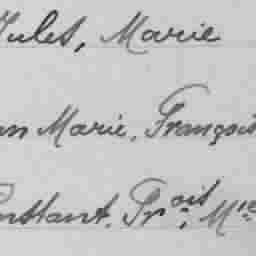 Jules, Marie
an Marie, François
onstant, Frois, Mie